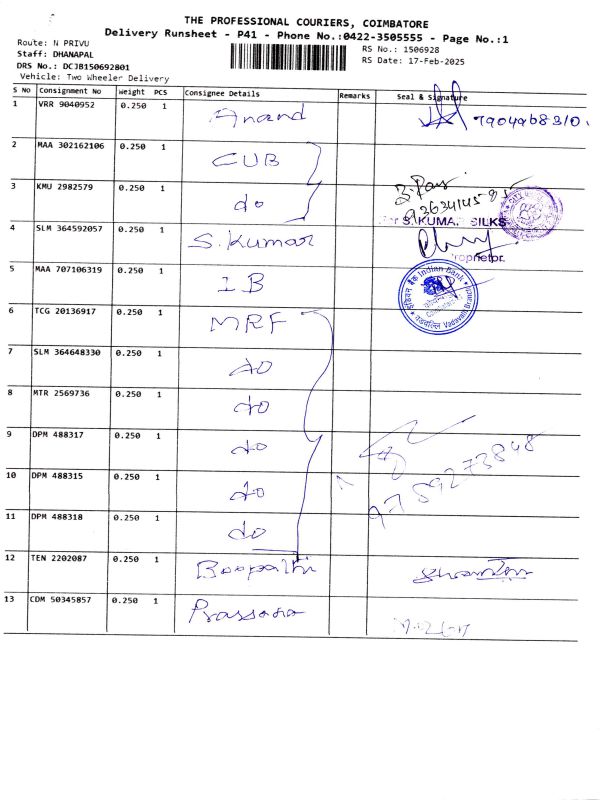 THE PROFESSIONAL COURIERS, COIMBATORE
Delivery Runsheet - P41 - Phone No.:0422-3505555 - Page No.:1
Route: N PRIVU
Staff: DHANAPAL
DRS No.: DCJB150692801
Vehicle: Two Wheeler Delivery
RS No.: 1506928
RS Date: 17-Feb-2025
S No Consignment No Weight PCS Consignee Details Remarks Seal & Signature
1 VRR 9040952 0.250 1 Anand
2 MAA 302162106 0.250 1 CUB
3 KMU 2982579 0.250 1 do
4 SLM 364592057 0.250 1 S.Kumar
For S.KUMAR SILKS
Proprietor.
5 MAA 707106319 0.250 1 IB
Indian Bank
इंडियन बैंक
Vadavalli Branch
6 TCG 20136917 0.250 1 MRF
7 SLM 364648330 0.250 1 do
8 MTR 2569736 0.250 1 do
9 DPM 488317 0.250 1 do
9789273848
10 DPM 488315 0.250 1 do
11 DPM 488318 0.250 1 do
12 TEN 2202087 0.250 1 Boopathi
13 CDM 50345857 0.250 1 Prassana